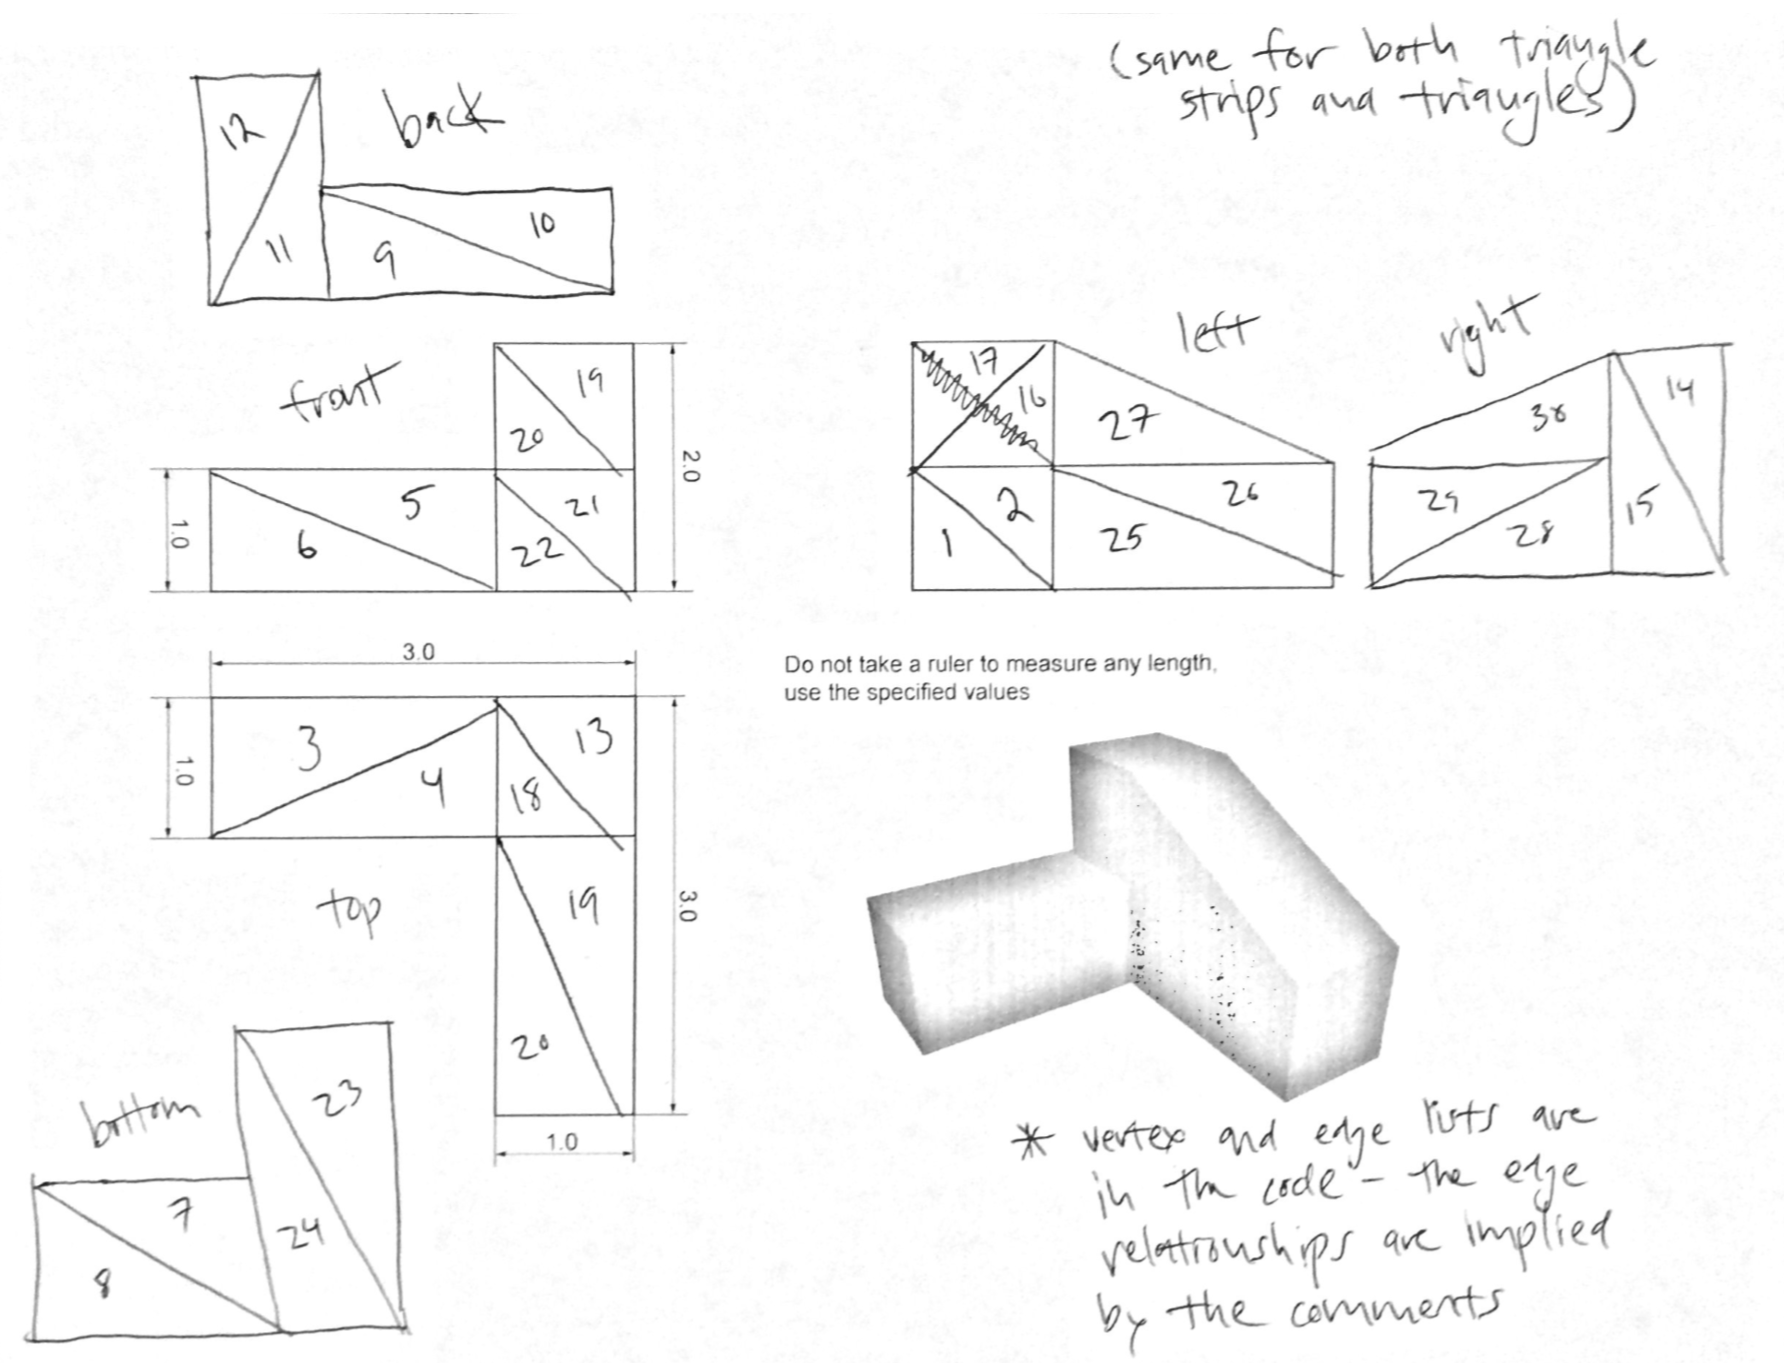 (same for both triangle
strips and triangles)
back
12
11
9
10
front
19
20
5
6
21
22
1.0
2.0
left
17
16
27
2
1
26
25
right
14
30
29
28
15
3.0
3
4
13
18
1.0
top
19
20
3.0
1.0
Do not take a ruler to measure any length,
use the specified values
bottom
23
24
7
8
* vertex and edge lists are
in the code - the edge
relationships are implied
by the comments